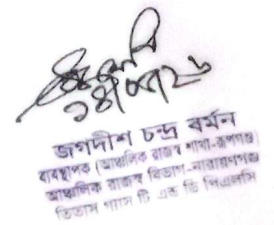 জগদীশ চন্দ্র বর্মন
ব্যবস্থাপক (আঞ্চলিক রাজস্ব শাখা-রূপগঞ্জ)
আঞ্চলিক রাজস্ব বিভাগ-নারায়ণগঞ্জ
তিতাস গ্যাস টি এন্ড ডি পিএলসি